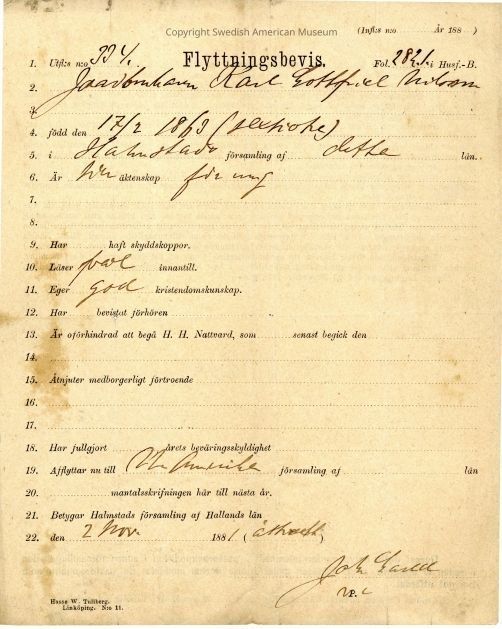 Copyright Swedish American Museum
(Infl:s n:o År 188 )
Flyttningsbevis.
1. Utfl:s n:o 334. Fol. 282.1. i Husf.-B.
2. Karl Gottfried Nilsson
3.
4. född den 17/2 1863 (sextiotre)
5. i Halmstads församling af detta län.
6. Är för äktenskap för ung
7.
8.
9. Har haft skyddskoppor.
10. Läser innantill.
11. Eger god kristendomskunskap.
12. Har bevistat förhören
13. Är oförhindrad att begå H. H. Nattvard, som senast begick den
14.
15. Åtnjuter medborgerligt förtroende
16.
17.
18. Har fullgjort årets beväringsskyldighet
19. Afflyttar nu till N. Amerika församling af län
20. mantalsskrifningen här till nästa år.
21. Betygar Halmstads församling af Hallands län
22. den 2 Nov. 1881 (åttioett)
v. P.
Hasse W. Tullberg.
Linköping. N:o 11.